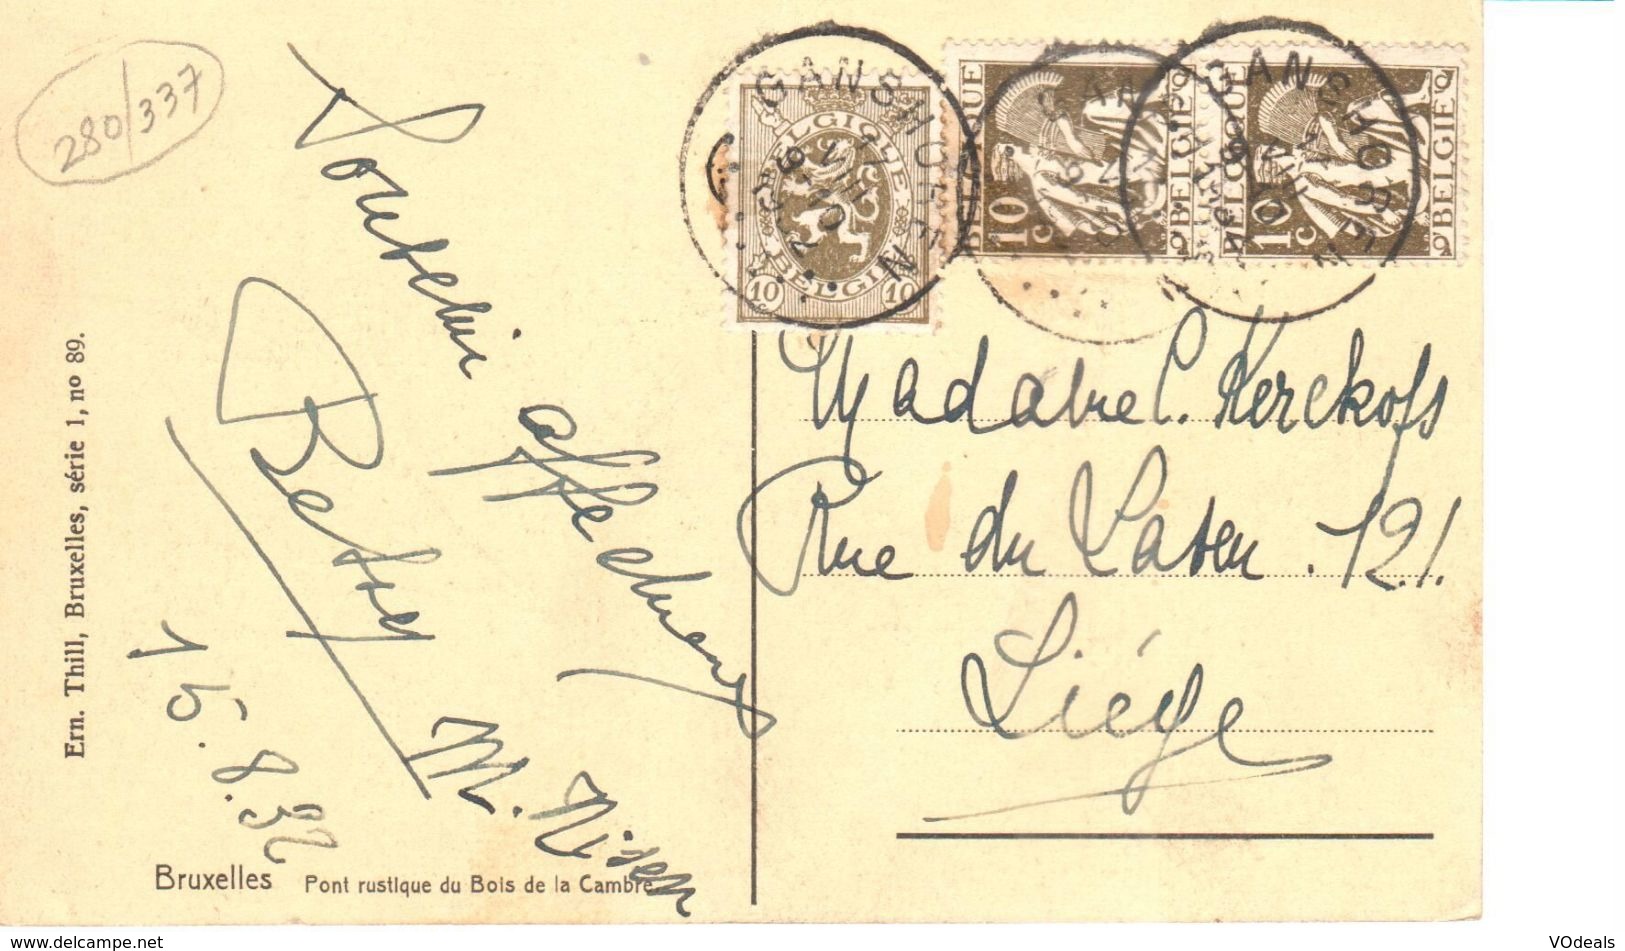 280/337
Souvenir affectueux
Betsy
M. Nisen
15.8.32
Ern. Thill, Bruxelles, série 1, nº 89.
Bruxelles Pont rustique du Bois de la Cambre.
GANSHOREN
BELGIQUE
BELGIE
10 10
GANSHOREN
BELGIQUE
10 c
BELGIE
GANSHOREN
BELGIQUE
10 c
BELGIE
Madame C. Kerckofs
Rue du Laveu . 121.
Liége
www.delcampe.net
VOdeals